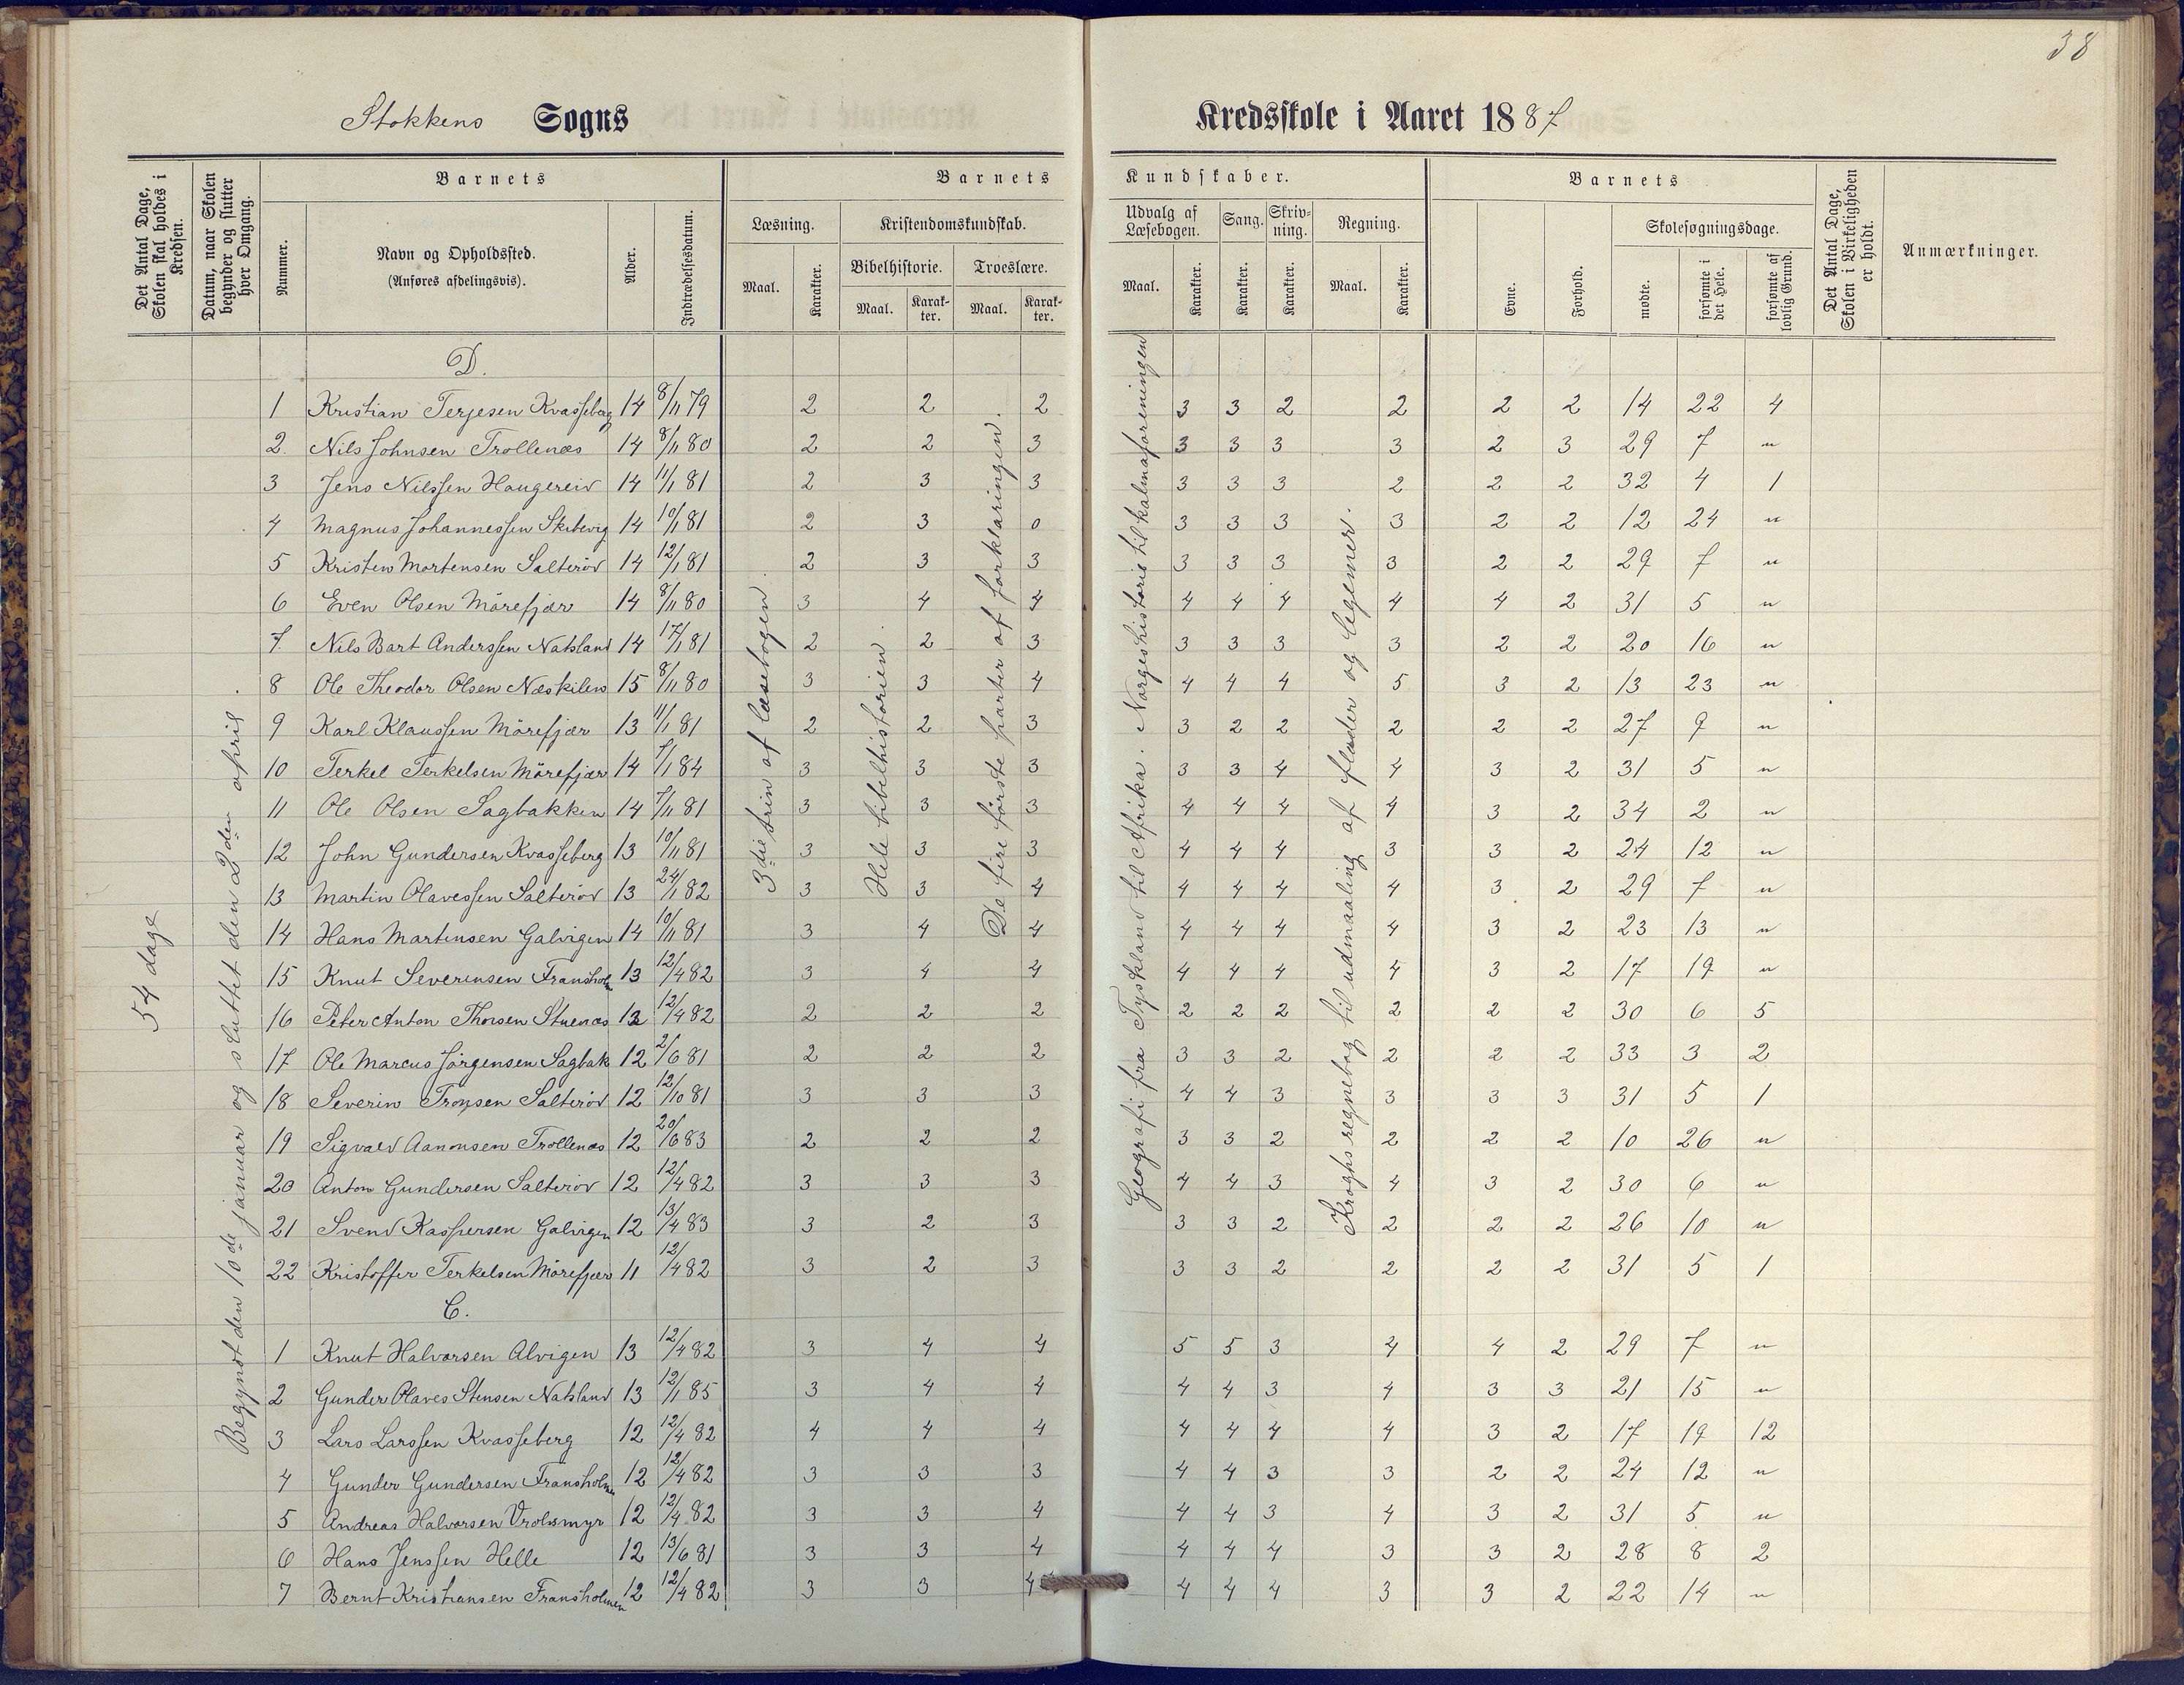 38
Stokkens Sogns Kredsskole i Aaret 1887
Det Antal Dage, Skolen skal holdes i Kredsen.
Datum, naar Skolen begynder og slutter hver Omgang.
Barnets
Nummer.
Navn og Opholdssted.
(Anføres afdelingsvis).
Alder.
Indtrædelsesdatum.
Barnets Kundskaber.
Læsning.
Maal.
Karakter.
Kristendomskundskab.
Bibelhistorie.
Maal.
Karakter.
Troeslære.
Maal.
Karakter.
Udvalg af Læsebogen.
Maal.
Karakter.
Sang.
Karakter.
Skrivning.
Karakter.
Regning.
Maal.
Karakter.
Barnets
Evne.
Forhold.
Skolesøgningsdage.
mødte.
forsømte i det Hele.
forsømte af lovlig Grund.
Det Antal Dage, Skolen i Virkeligheden er holdt.
Anmærkninger.
54 dage
Begyndt den 10de januar og sluttet den 2den april
3die trin af læsebogen.
Hele bibelhistorien.
De fire første parter af forklaringen.
Geografi fra Tyskland til Afrika. Norgeshistorie til kalmaforeningen
Kroghs regnebog til udmaaling af flader og legemer.
D.
1 Kristian Terjesen Kvasseberg 14 8/11 79 2 2 2 3 3 2 2 2 2 14 22 4
2. Nils Johnsen Trollenæs 14 8/11 80 2 2 3 3 3 3 3 2 3 29 7 "
3 Jens Nilssen Haugereid 14 11/1 81 2 3 3 3 3 3 2 2 2 32 4 1
4 Magnus Johannessen Skibevig 14 10/1 81 2 3 0 3 3 3 3 2 2 12 24 "
5 Kristen Mortensen Salterød 14 12/1 81 2 3 3 3 3 3 3 2 2 29 7 "
6 Even Olsen Mørefjær 14 8/11 80 3 4 4 4 4 4 4 4 2 31 5 "
7. Nils Bart Anderssen Natsland 14 17/1 81 2 2 3 3 3 3 3 2 2 20 16 "
8 Ole Theodor Olsen Næskilen 15 8/11 80 3 3 4 4 4 4 5 3 2 13 23 "
9 Karl Klaussen Mørefjær 13 11/1 81 2 2 3 3 2 2 2 2 2 27 9 "
10 Terkel Terkelsen Mørefjær 14 7/1 84 3 3 3 3 3 4 4 3 2 31 5 "
11 Ole Olsen Sagbakken 14 7/11 81 3 3 3 4 4 4 4 3 2 34 2 "
12 John Gundersen Kvasseberg 13 10/11 81 3 3 3 4 4 4 3 3 2 24 12 "
13 Martin Olavessen Salterød 13 24/1 82 3 3 4 4 4 4 4 3 2 29 7 "
14 Hans Martinsen Galvigen 14 10/11 81 3 4 4 4 4 4 4 3 2 23 13 "
15 Knut Severinsen Fransholm 13 12/4 82 3 4 4 4 4 4 4 3 2 17 19 "
16 Peter Anton Thorsen Stuenæs 12 12/4 82 2 2 2 2 2 2 2 2 2 30 6 5
17 Ole Marcus Jørgensen Sagbak 12 2/6 81 2 2 2 3 3 2 2 2 2 33 3 2
18 Severin Tronsen Salterød 12 12/10 81 3 3 3 4 4 3 3 3 3 31 5 1
19 Sigvald Aanonsen Trollenæs 12 20/6 83 2 2 2 3 3 2 2 2 2 10 26 "
20 Anton Gundersen Salterød 12 12/4 82 3 3 3 4 4 3 4 3 2 30 6 "
21 Svend Kaspersen Galvigen 12 13/4 83 3 2 3 3 3 2 2 2 2 26 10 "
22 Kristoffer Terkelsen Mørefjær 11 12/4 82 3 2 3 3 3 2 2 2 2 31 5 1
C.
1 Knut Halvorsen Alvigen 13 12/4 82 3 4 4 5 5 3 4 4 2 29 7 "
2 Gunder Olaves Stensen Natsland 13 12/1 85 3 4 4 4 4 3 4 3 3 21 15 "
3 Lars Larssen Kvasseberg 12 12/4 82 4 4 4 4 4 4 4 3 2 17 19 12
4 Gunder Gundersen Fransholmen 12 12/4 82 3 3 3 4 4 3 3 2 2 24 12 "
5 Andreas Halvorsen Vrolsmyr 12 12/4 82 3 3 4 4 4 3 4 3 2 31 5 "
6 Hans Jenssen Helle 12 13/6 81 3 3 4 4 4 4 3 3 2 28 8 2
7 Bernt Kristiansen Fransholmen 12 12/4 82 3 3 4 4 4 4 3 3 2 22 14 "